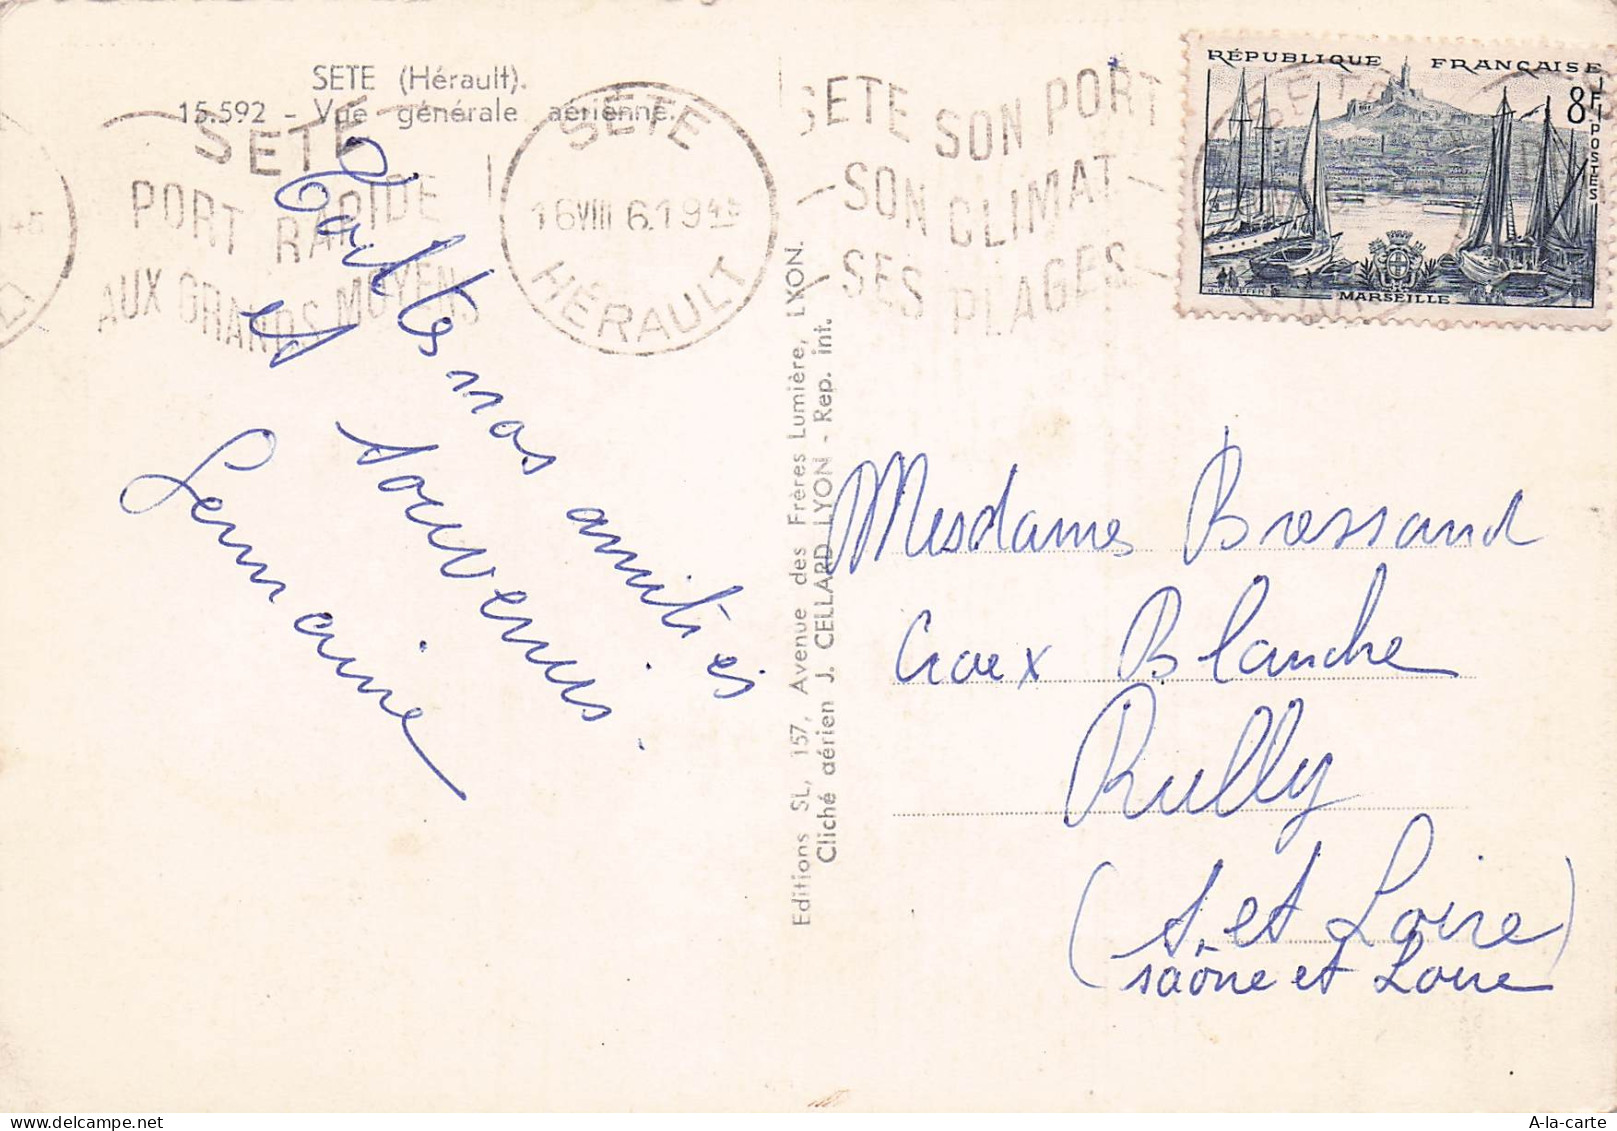 SETE (Hérault).
15.592 - Vue générale aérienne.
SETE
PORT RAPIDE
AUX GRANDS MOYENS
SETE
16 VIII 6.1945
HÉRAULT
SETE SON PORT
SON CLIMAT
SES PLAGES
RÉPUBLIQUE FRANÇAISE
8F
POSTES
MARSEILLE
Toutes nos amitiés
et souvenirs.
Germaine
Editions SL, 157, Avenue des Frères Lumière, LYON.
Cliché aérien J. CELLARD LYON - Rep. int.
Mesdames Bressand
Croix Blanche
Rully
(S. et Loire)
saône et Loire
A-la-carte